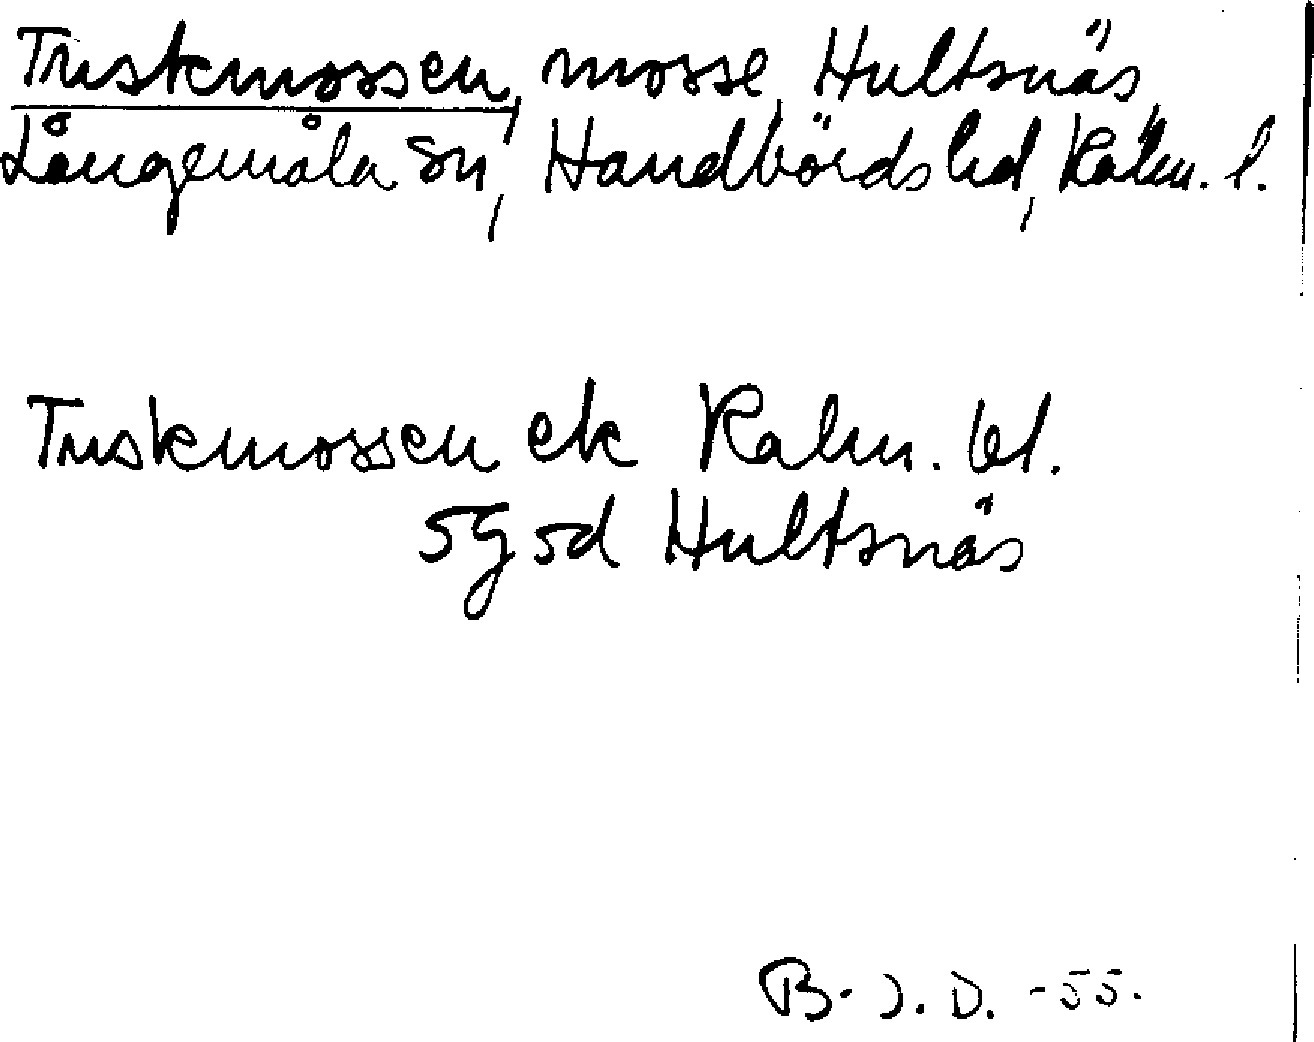 Truskmossen, mosse, Hultsnäs,
Långemåla sn, Handbörds hd, Kalm. l.
Truskmossen ek Kalm. bl.
5g5d Hultsnäs
B. J. D. -55.